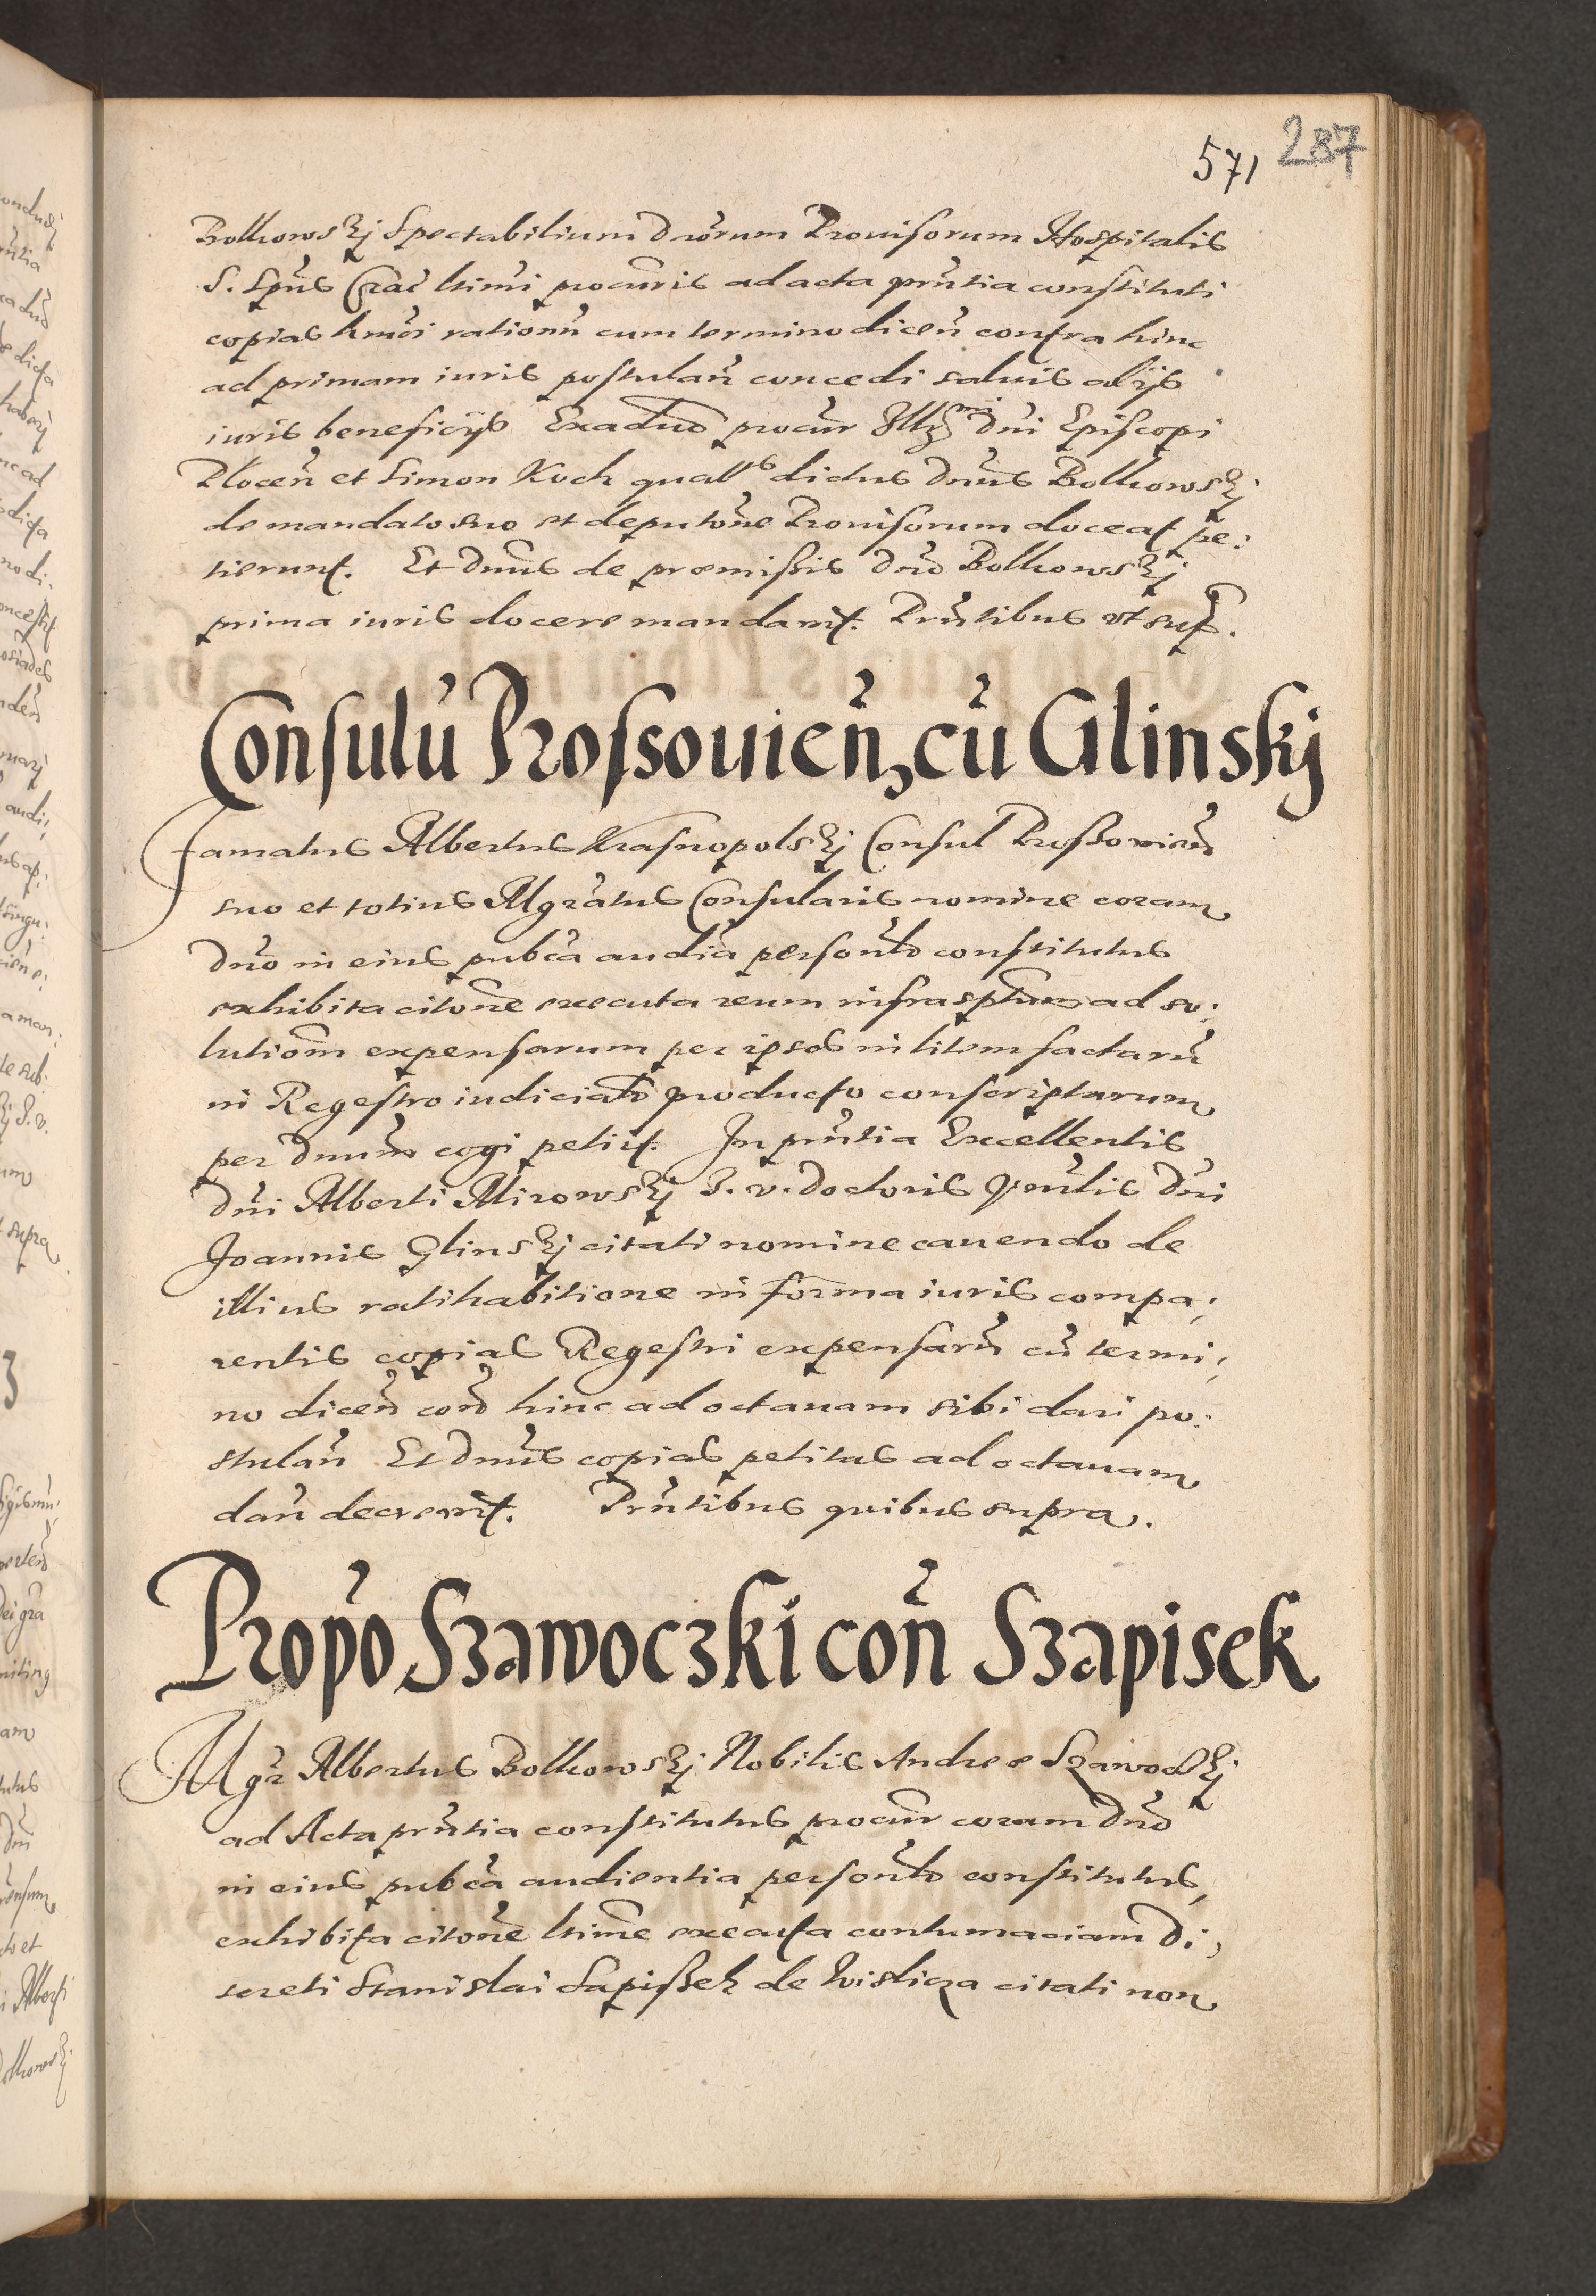 571 287
Bolkowskj Spectabilium Dnorum Prouisorum Hospitalis
S. Spūs Crac ltimi procuris ad acta pn̄tia constituti
copias hmōi rationū cum termino dicen̄ contra hinc
ad primam iuris postulan̄ concedi saluis alijs
iuris beneficijs Ex aduo procur Illmi Dni Episcopi
Plocen̄ et Simon Koch dictus Dnūs Bolkowskj
de mandato suo et deputōne Prouisorum doceat pe:
tierunt. Et Dnūs de præmissis Dnō Bolkowskj
prima iuris docere mandauit. Prn̄tibus vt sup̄.
Consulū Prossouicen̄, cū Glinskj
Famatus Albertus Krasnopolskj Consul Prossouicen̄
suo et totius Mgrātus Consularis nomine coram
Dnō in eius pubca audia personlr constitutus
exhibita citōne executa reum infrasptum ad so:
lutiōm expensarum per ipsos in litem factarū
in Regestro iudicialr producto conscriptarum
per Dnum cogi petiit. In pn̄tia Excellentis
Dni Alberti Mirowskj J. V. Doctoris Dni
Joannis Glinskj citati nomine cauendo de
illius ratihabitione in forma iuris compa:
rentis copias Regestri expensarū cū termi:
no dicen̄ con̄ hinc ad octauam sibi dari po:
stulan̄ Et Dnūs copias petitas ad octauam
dan̄ decreuit. Prn̄tibus quibus supra.
Propō Szawoczki con̄ Szapisek
Mgr Albertus Bolkowskj Nobilis Andreæ Szawockj
ad Acta prn̄tia constitutus procur coram Dnō
in eius pubca audientia personlr constitutus
exhibita citōne ltime executa contumaciam Di:
screti Stanislai Sapissek de Wislicza citati non